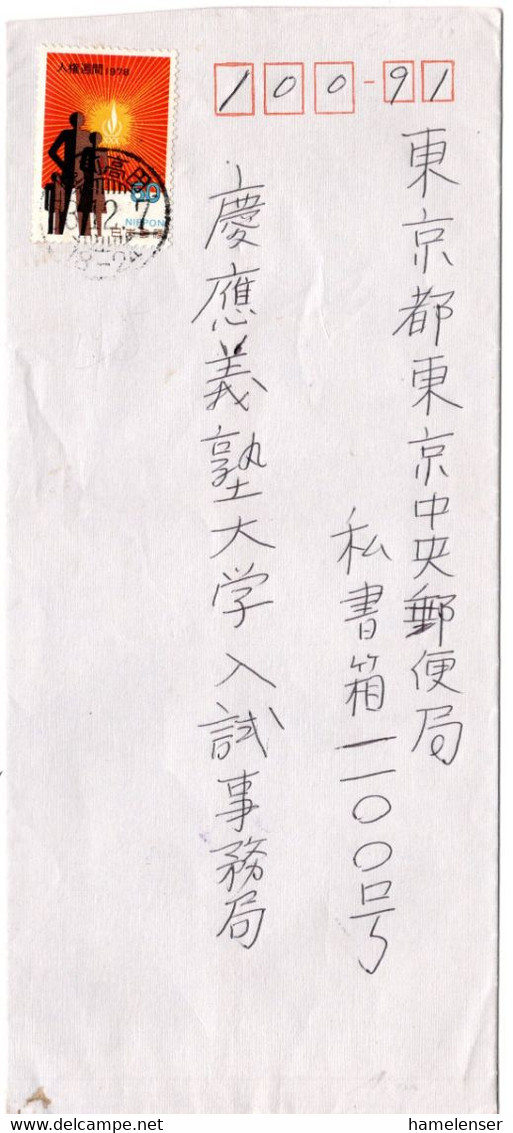 人権週間1978
NIPPON
100-91
東京都東京中央郵便局
私書箱一一〇〇号
慶應義塾大学入試事務局
hamelenser